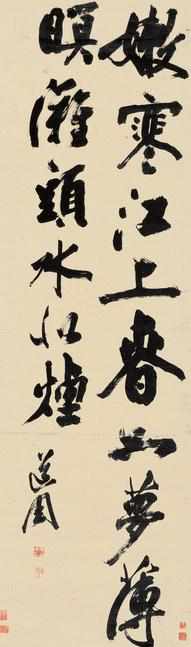 嫩寒江上春如夢薄
暝灘頭水似煙
道周